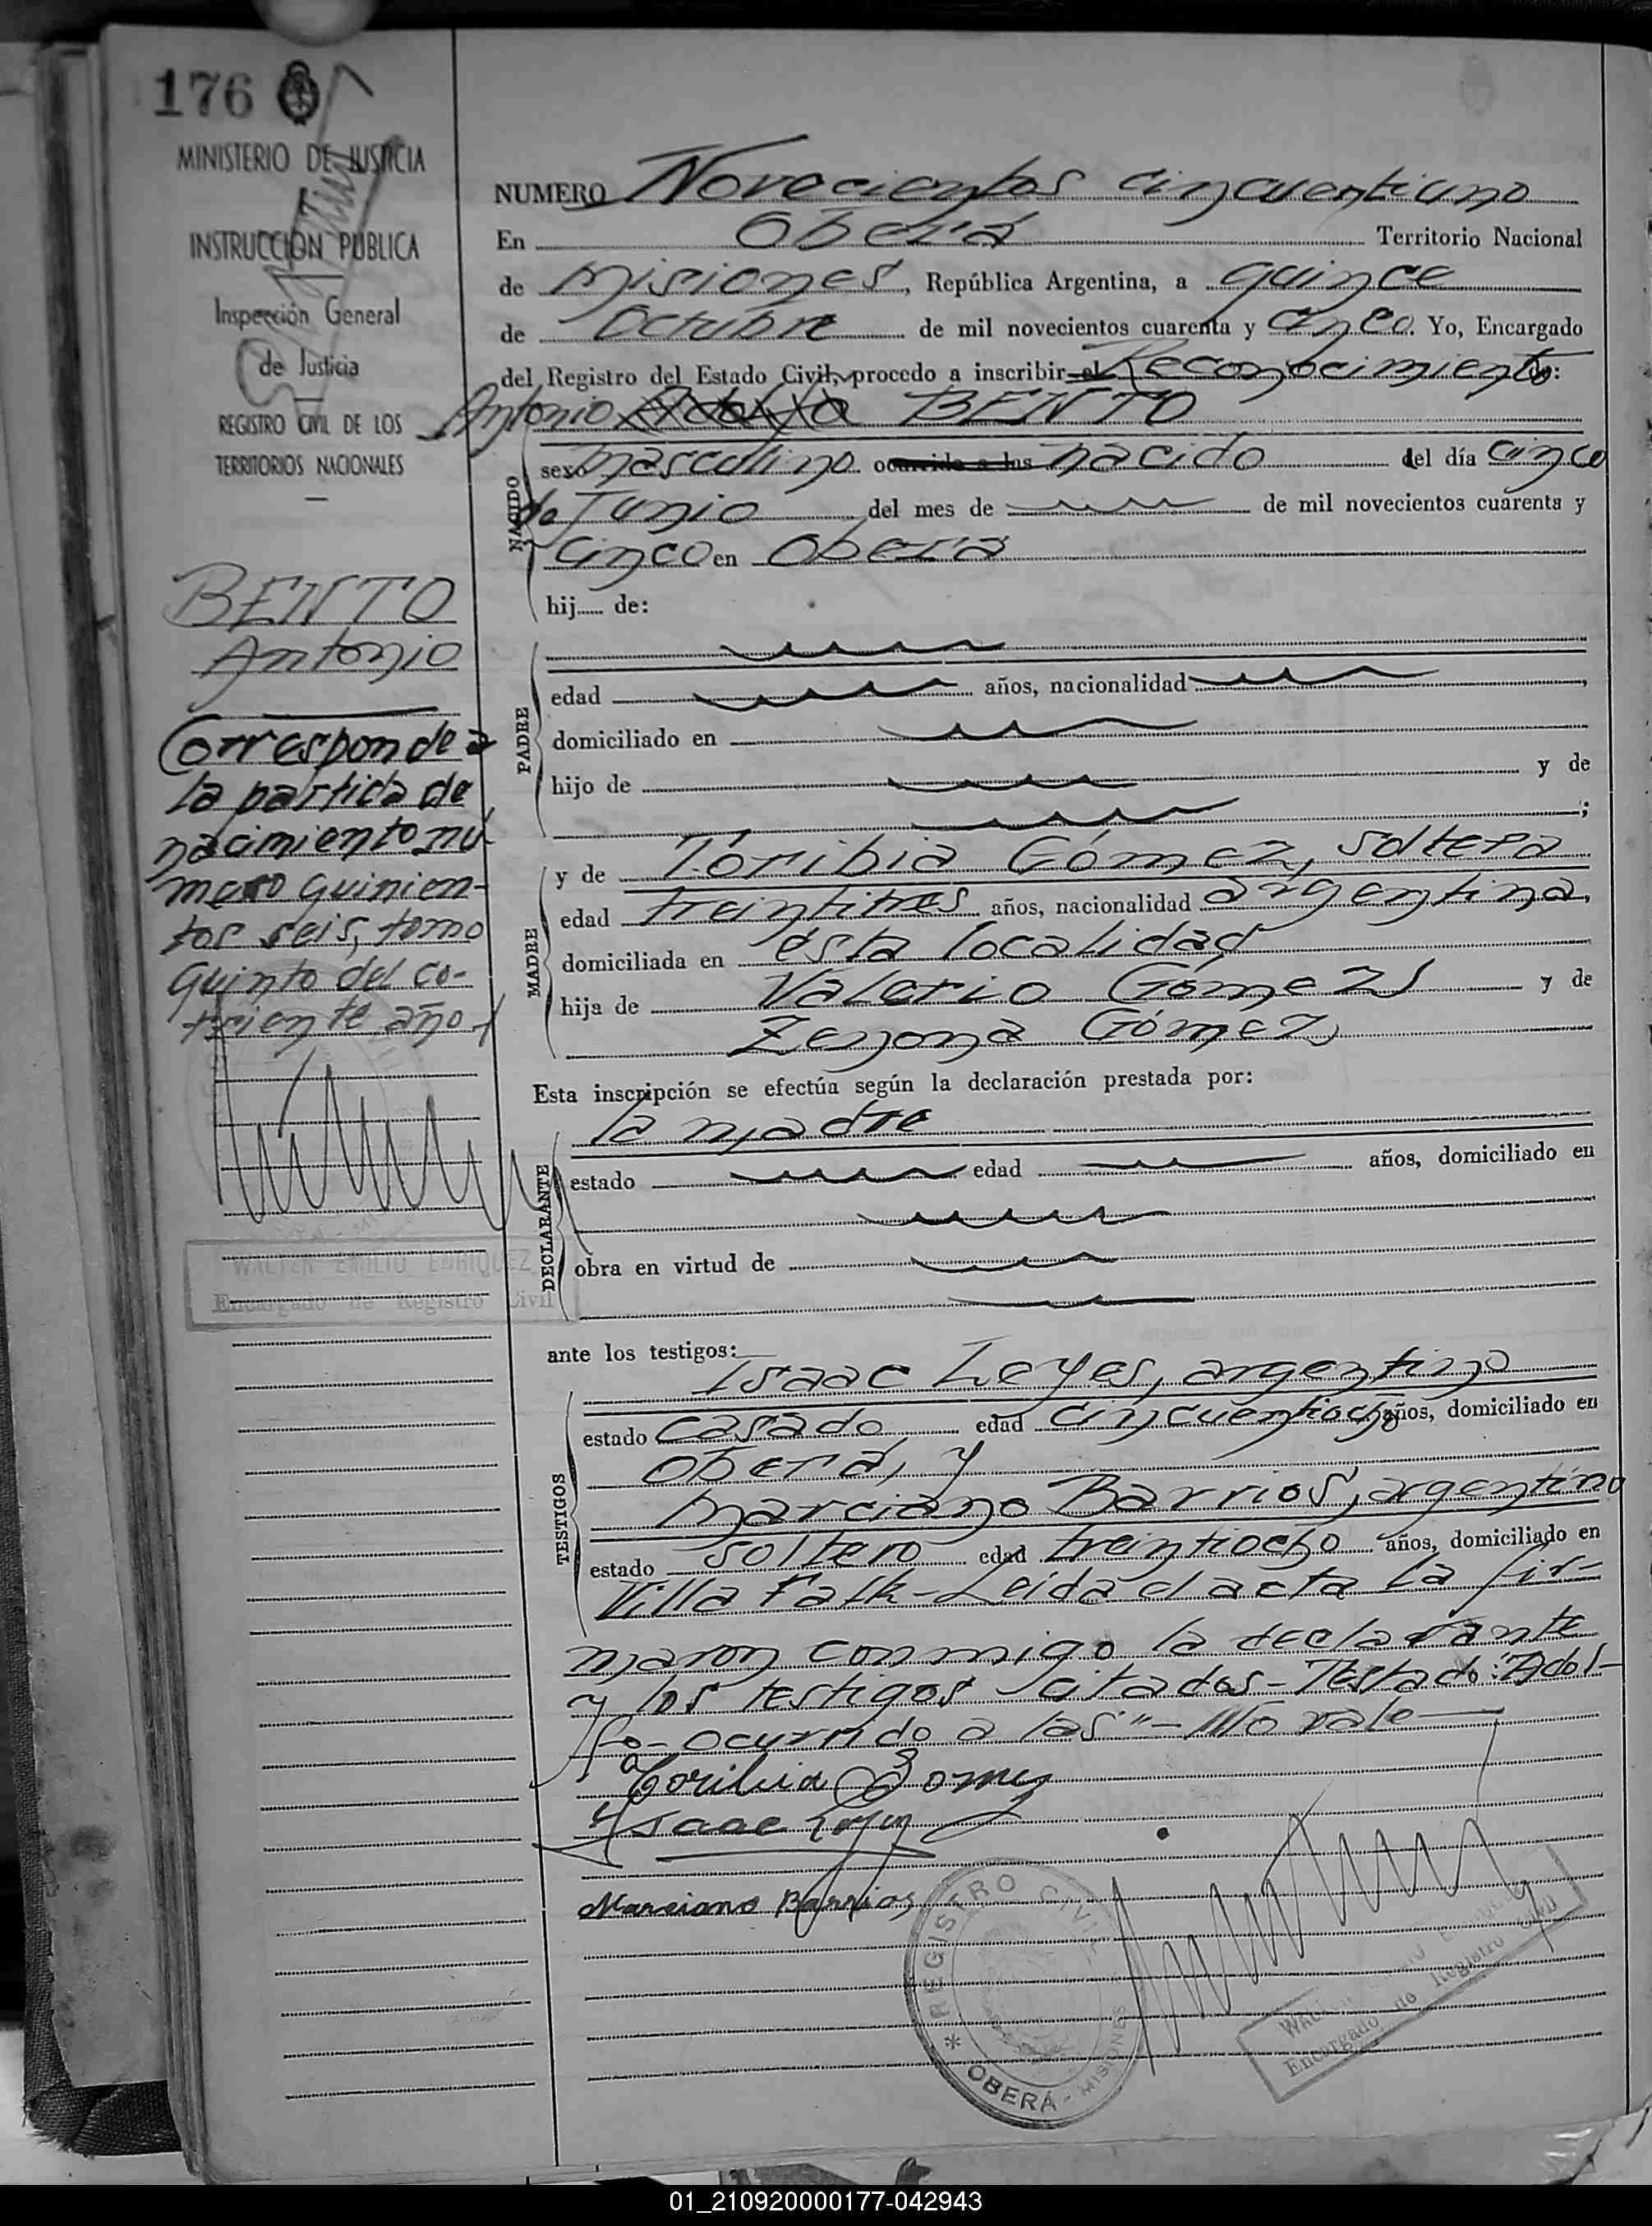 176
MINISTERIO DE JUSTICIA
E
INSTRUCCION PUBLICA
Inspección General
de Justicia
REGISTRO CIVIL DE LOS
TERRITORIOS NACIONALES
BENTO
Antonio
Corresponde a
la partida de
nacimiento nú
mero quinien-
tos seis, tomo
quinto del co-
rriente año
WALTER EMILIO ENRIQUEZ
Encargado de Registro Civil
NUMERO Novecientos cincuentiuno
En Oberá Territorio Nacional
de Misiones, República Argentina, a quince
de Octubre de mil novecientos cuarenta y cinco. Yo, Encargado
del Registro del Estado Civil, procedo a inscribir el Reconocimiento:
Antonio Adolfo BENTO
NACIDO
sexo masculino ocurrido a las nacido del día cinco
de Junio del mes de de mil novecientos cuarenta y
cinco en Oberá
hij de:
PADRE
edad años, nacionalidad
domiciliado en
hijo de y de
;
MADRE
y de Toribia Gómez, soltera
edad treintitres años, nacionalidad argentina,
domiciliada en ésta localidad
hija de Valerio Gómez y de
Zenona Gómez
Esta inscripción se efectúa según la declaración prestada por:
la madre
DECLARANTE
estado edad años, domiciliado en
obra en virtud de
ante los testigos:
Isaac Leyes, argentino
TESTIGOS
estado casado edad cincuentiocho años, domiciliado en
Oberá, y
Marciano Barrios, argentino
estado soltero edad treintiocho años, domiciliado en
Villa Falk - Leida el acta la fir-
maron conmigo la declarante
y los testigos citados - Testado: "Adol-
fo - ocurrido a las" - No vale
Toribia Gomez
Isaac Leyes
Marciano Barrios
REGISTRO CIVIL
OBERÁ - MISIONES
Encargado de Registro Civil
01_210920000177-042943